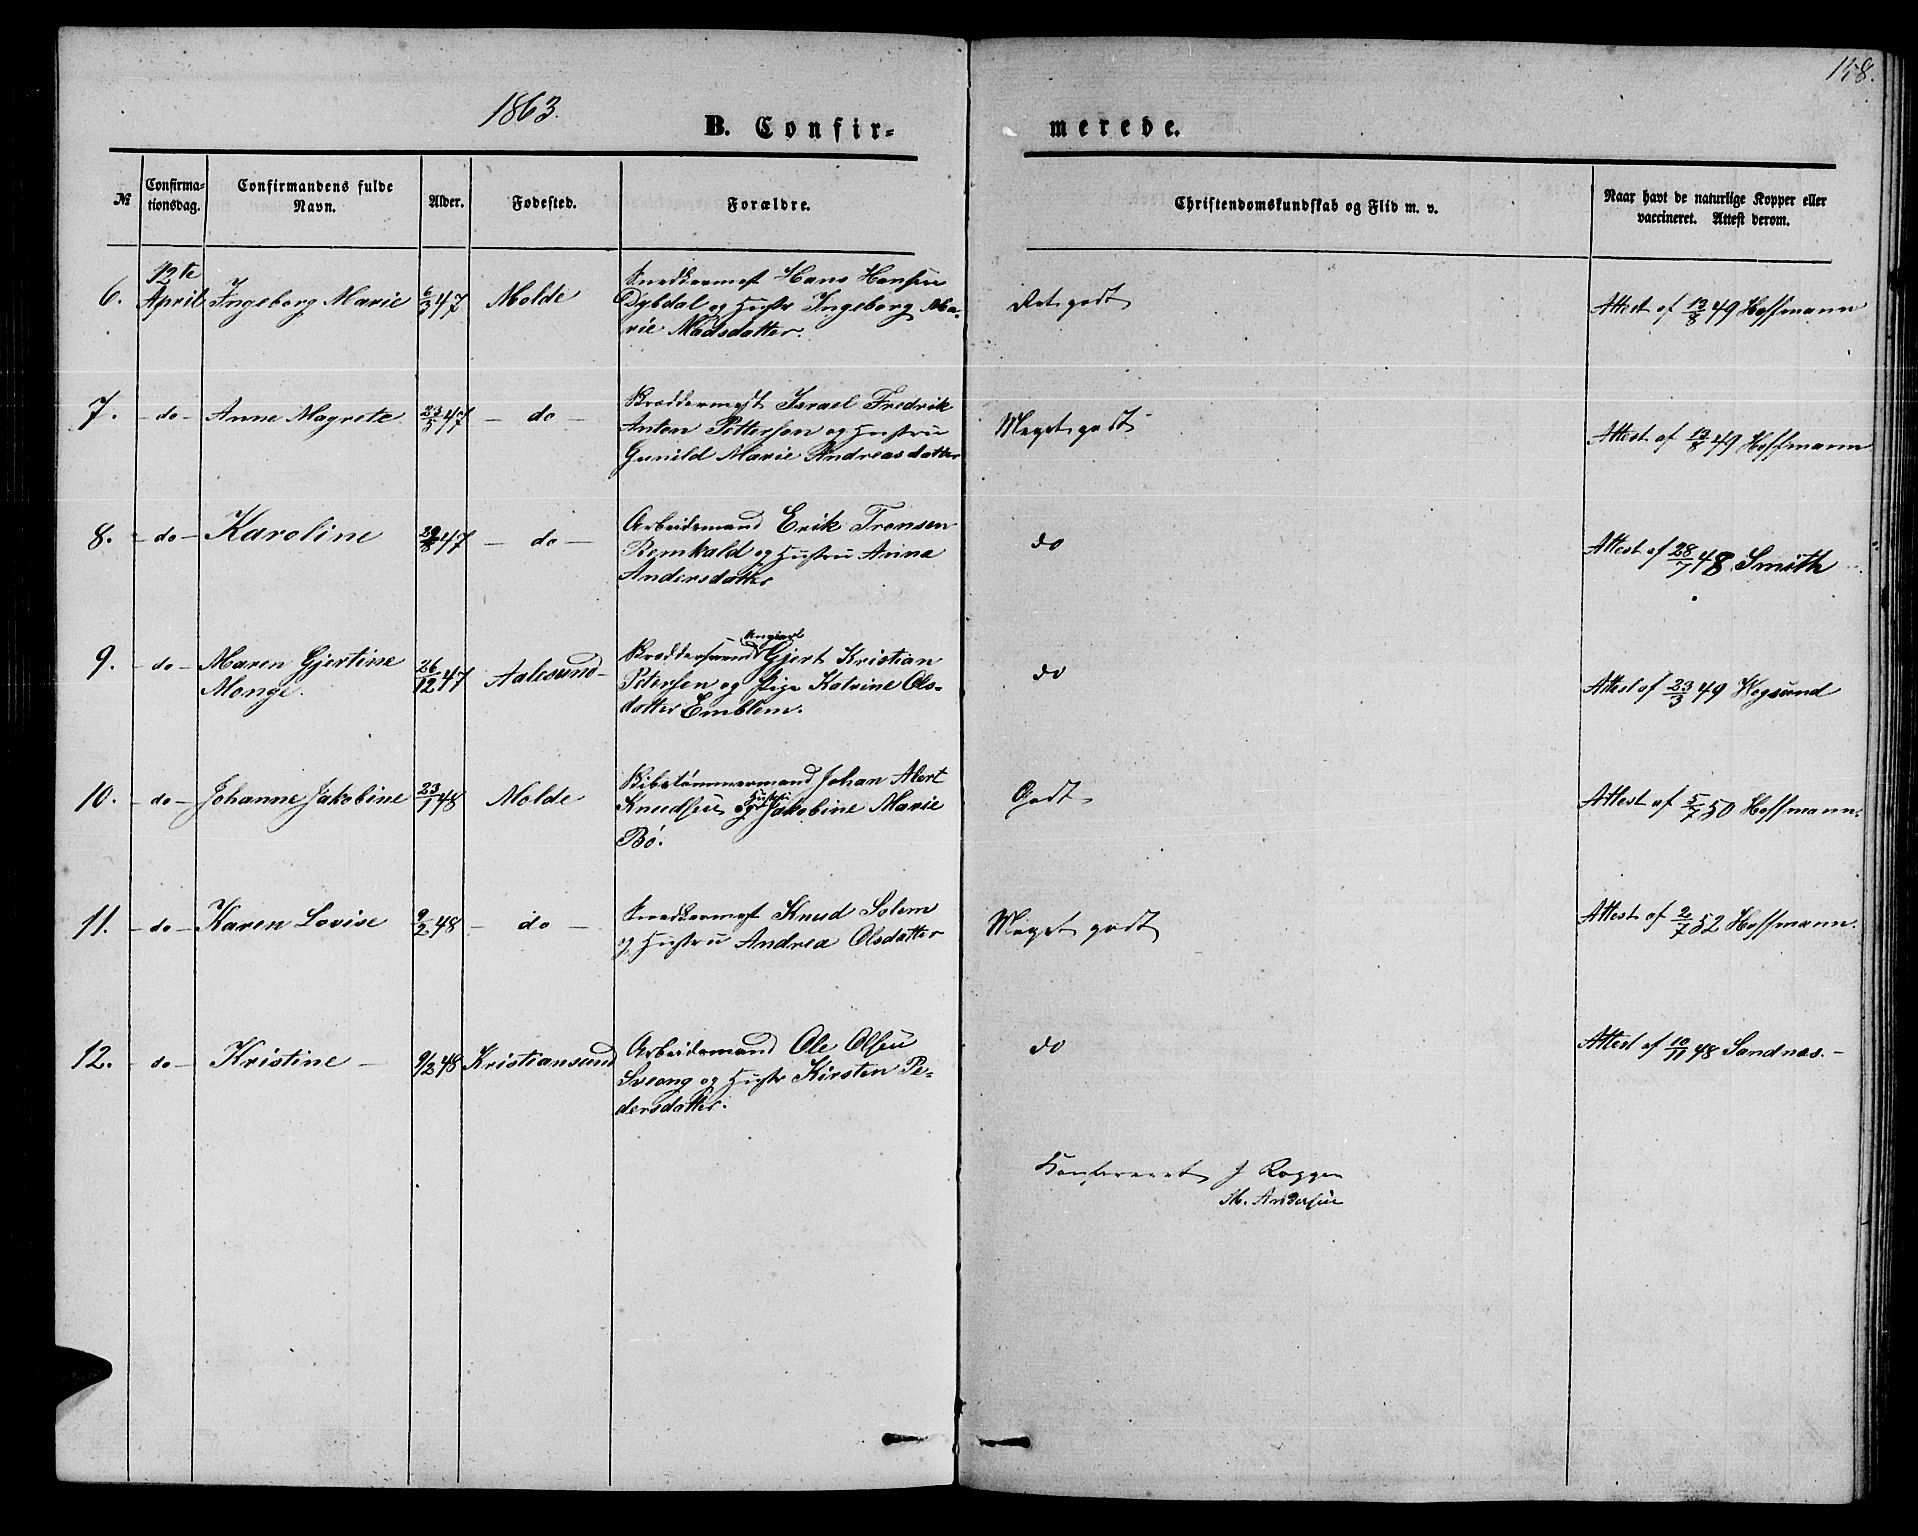 158.
1863.
B. Confir-
merede.
№
Confirma-
tionsdag.
Confirmandens fulde
Navn.
Alder.
Fødested.
Forældre.
Christendomskundskab og Flid m. v.
Naar havt de naturlige Kopper eller
vaccineret. Attest derom.
6.
12te
April
Ingeborg Marie
6/3 47
Molde
Snedkermest Hans Hansen
Dybdal og Hustr Ingeborg Ma-
rie Madsdatter.
Ret godt
Attest af 13/8 49 Hoffmann
7.
- do -
Anne Magrete
23/5 47
- do -
Israel Fredrik
Anton Petterson og Hustru
Gunild Marie Andreasdatter
Meget godt
Attest af 13/8 49 Hoffmann
8.
- do -
Karoline
47
- do -
Arbeidsmand Erik Tronsen
Remkald og Hustru Anna
Andersdatter
do
Attest af 28/7 48 Smith
9.
- do -
Maren Gjertine
Monge.
26/12 47
Aalesund
Ungkarl
Gjert Kristian
Petersen og Pige Katrine Ols-
datter Emblem.
do
Attest af 23/3 49 Wegsund
10.
- do -
Johanne Jakobine
23/1 48
Molde
Skibstømmermand Johan Abert
Knudsen og Hustru Jakobine Marie
Bö.
Godt
Attest af 5/7 50 Hoffmann.
11.
- do -
Karen Lovise
9/2 48
- do -
Snedkermest Knud Solem
og Hustru Andrea Olsdatter
Meget godt
Attest af 2/7 52 Hoffmann.
12.
- do -
Kristine -
9/2 48
Kristiansund
Arbeidsmand Ole Olsen
Sveang og Hustr Kirsten Pe-
dersdatter.
do
Attest af 10/11 48 Sandnæs. -
Konfereret J Roggen
M. Andersen